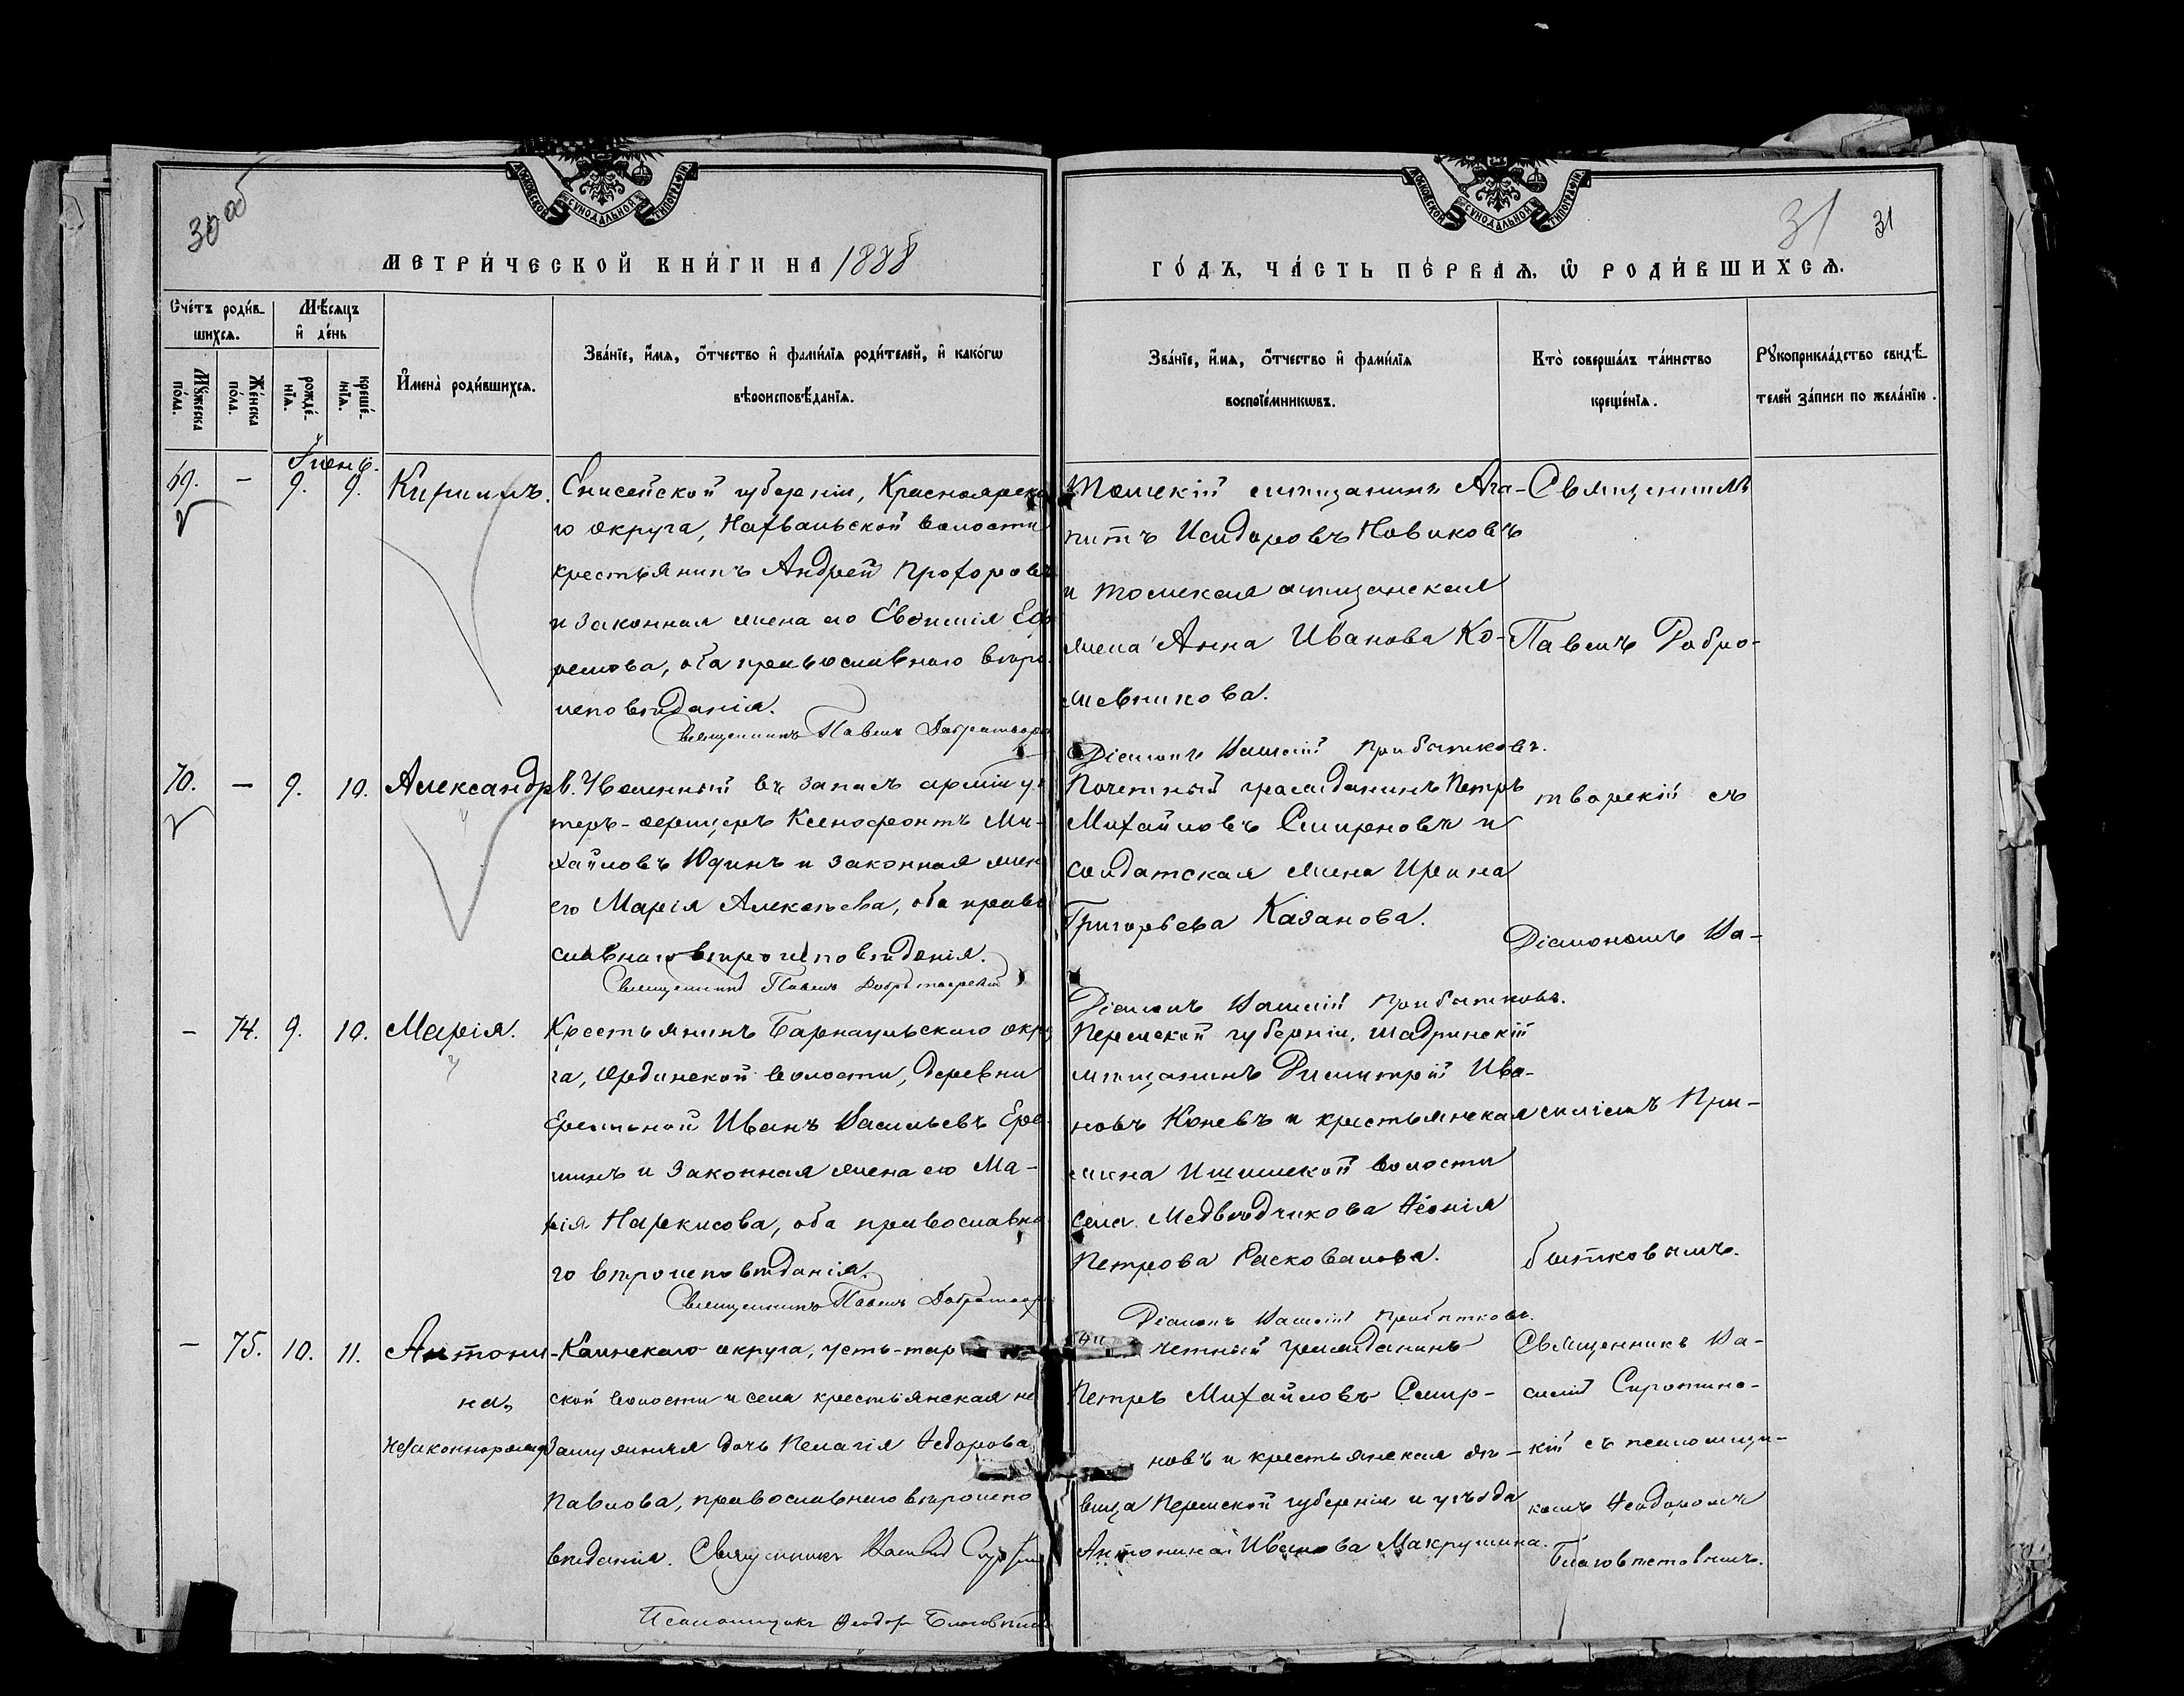 30 об
31
31
МОСКОВСКОЙ СУНОДАЛЬНОЙ ТИПОГРАФІИ
МОСКОВСКОЙ СУНОДАЛЬНОЙ ТИПОГРАФІИ
МЕТРИ́ЧЕСКОЙ КНИ́ГИ НА 1888
ГО́ДЪ, ЧА́СТЬ ПЕ́РВАѦ, Ѡ РОДИ́ВШИХСѦ.
Сче́тъ роди́в-
шихсѧ.
Мꙋ́жеска по́ла.
Же́нска по́ла.
Мѣ́сѧцъ
и҆ де́нь
рожде́-
нїѧ.
креще́-
нїѧ.
И҆мена̀ роди́вшихсѧ.
Зва́нїе, и҆́мѧ, ѻ҆́тчество и҆ фами́лїѧ роди́телей, и҆ како́гѡ
вѣроисповѣ́данїѧ.
Зва́нїе, и҆́мѧ, ѻ҆́тчество и҆ фами́лїѧ
воспрїе́мникѡвъ.
Кто̀ соверша́лъ та́инство
креще́нїѧ.
Рꙋкоприкла́дство свидѣ́-
телей за́писи по жела́нїю.
Іюнь.
69. - 9. 9. Кириллъ.
Енисейской губерніи, Красноярска
го округа, Нахвальской волости
крестьянинъ Андрей Прохоровъ
и законная жена его Евѳимія Еф
ремова, оба православнаго вѣро
исповѣданія.
Священникъ Павелъ Добротвор
Томскій мѣщанинъ Ага-
питъ Исидоровъ Новиковъ
и томская мѣщанская
жена Анна Иванова Ко-
жевникова.
Діаконъ Василій Прибытковъ.
Священникъ
Павелъ Добро-
70. - 9. 10. Александръ.
Уволенный въ запасъ арміи ун
теръ-офицеръ Ксенофонтъ Ми-
хайловъ Юдинъ и законная жен
его Марія Алексѣева, оба право
славнаго вѣроисповѣданія.
Священникъ Павелъ Добротворскій
Почетный гражданинъ Петръ
Михайловъ Смирновъ и
солдатская жена Ирина
Григорьева Казанова.
Діаконъ Василій Прибытковъ.
творскій съ
Діакономъ Ва-
- 74. 9. 10. Марія.
Крестьянинъ Барнаульскаго окру
га, Ординской волости, деревни
Ересьной Иванъ Васильевъ Ере-
минъ и законная жена его Ма-
рія Наркисова, оба православна
го вѣроисповѣданія.
Священникъ Павелъ Добротвор
Пермской губерніи, Шадринскій
мѣщанинъ Димитрій Ива-
новъ Коневъ и крестьянская
жена Ишимской волости
села Медвѣдчикова Ѳеонія
Петрова Расковалова.
Діаконъ Василій Прибытковъ.
силіемъ При-
бытковымъ.
- 75. 10. 11. Антони-
на,
незаконнорожд
Каинскаго округа, усть-тар
ской волости и села крестьянская не
замужняя дочь Пелагія Ѳедорова
Павлова, православнаго вѣроиспо
вѣданія. Священникъ Василій
Псаломщикъ Ѳеодоръ Благовѣст
четный гражданинъ
Петръ Михайловъ Смир-
новъ и крестьянская дѣ-
вица Пермской губерніи и уѣзда
Антонина Иванова Макрушина.
Священникъ Ва-
силій Сиротинс-
кій съ псаломщи-
комъ Ѳеодоромъ
Благовѣстовымъ.